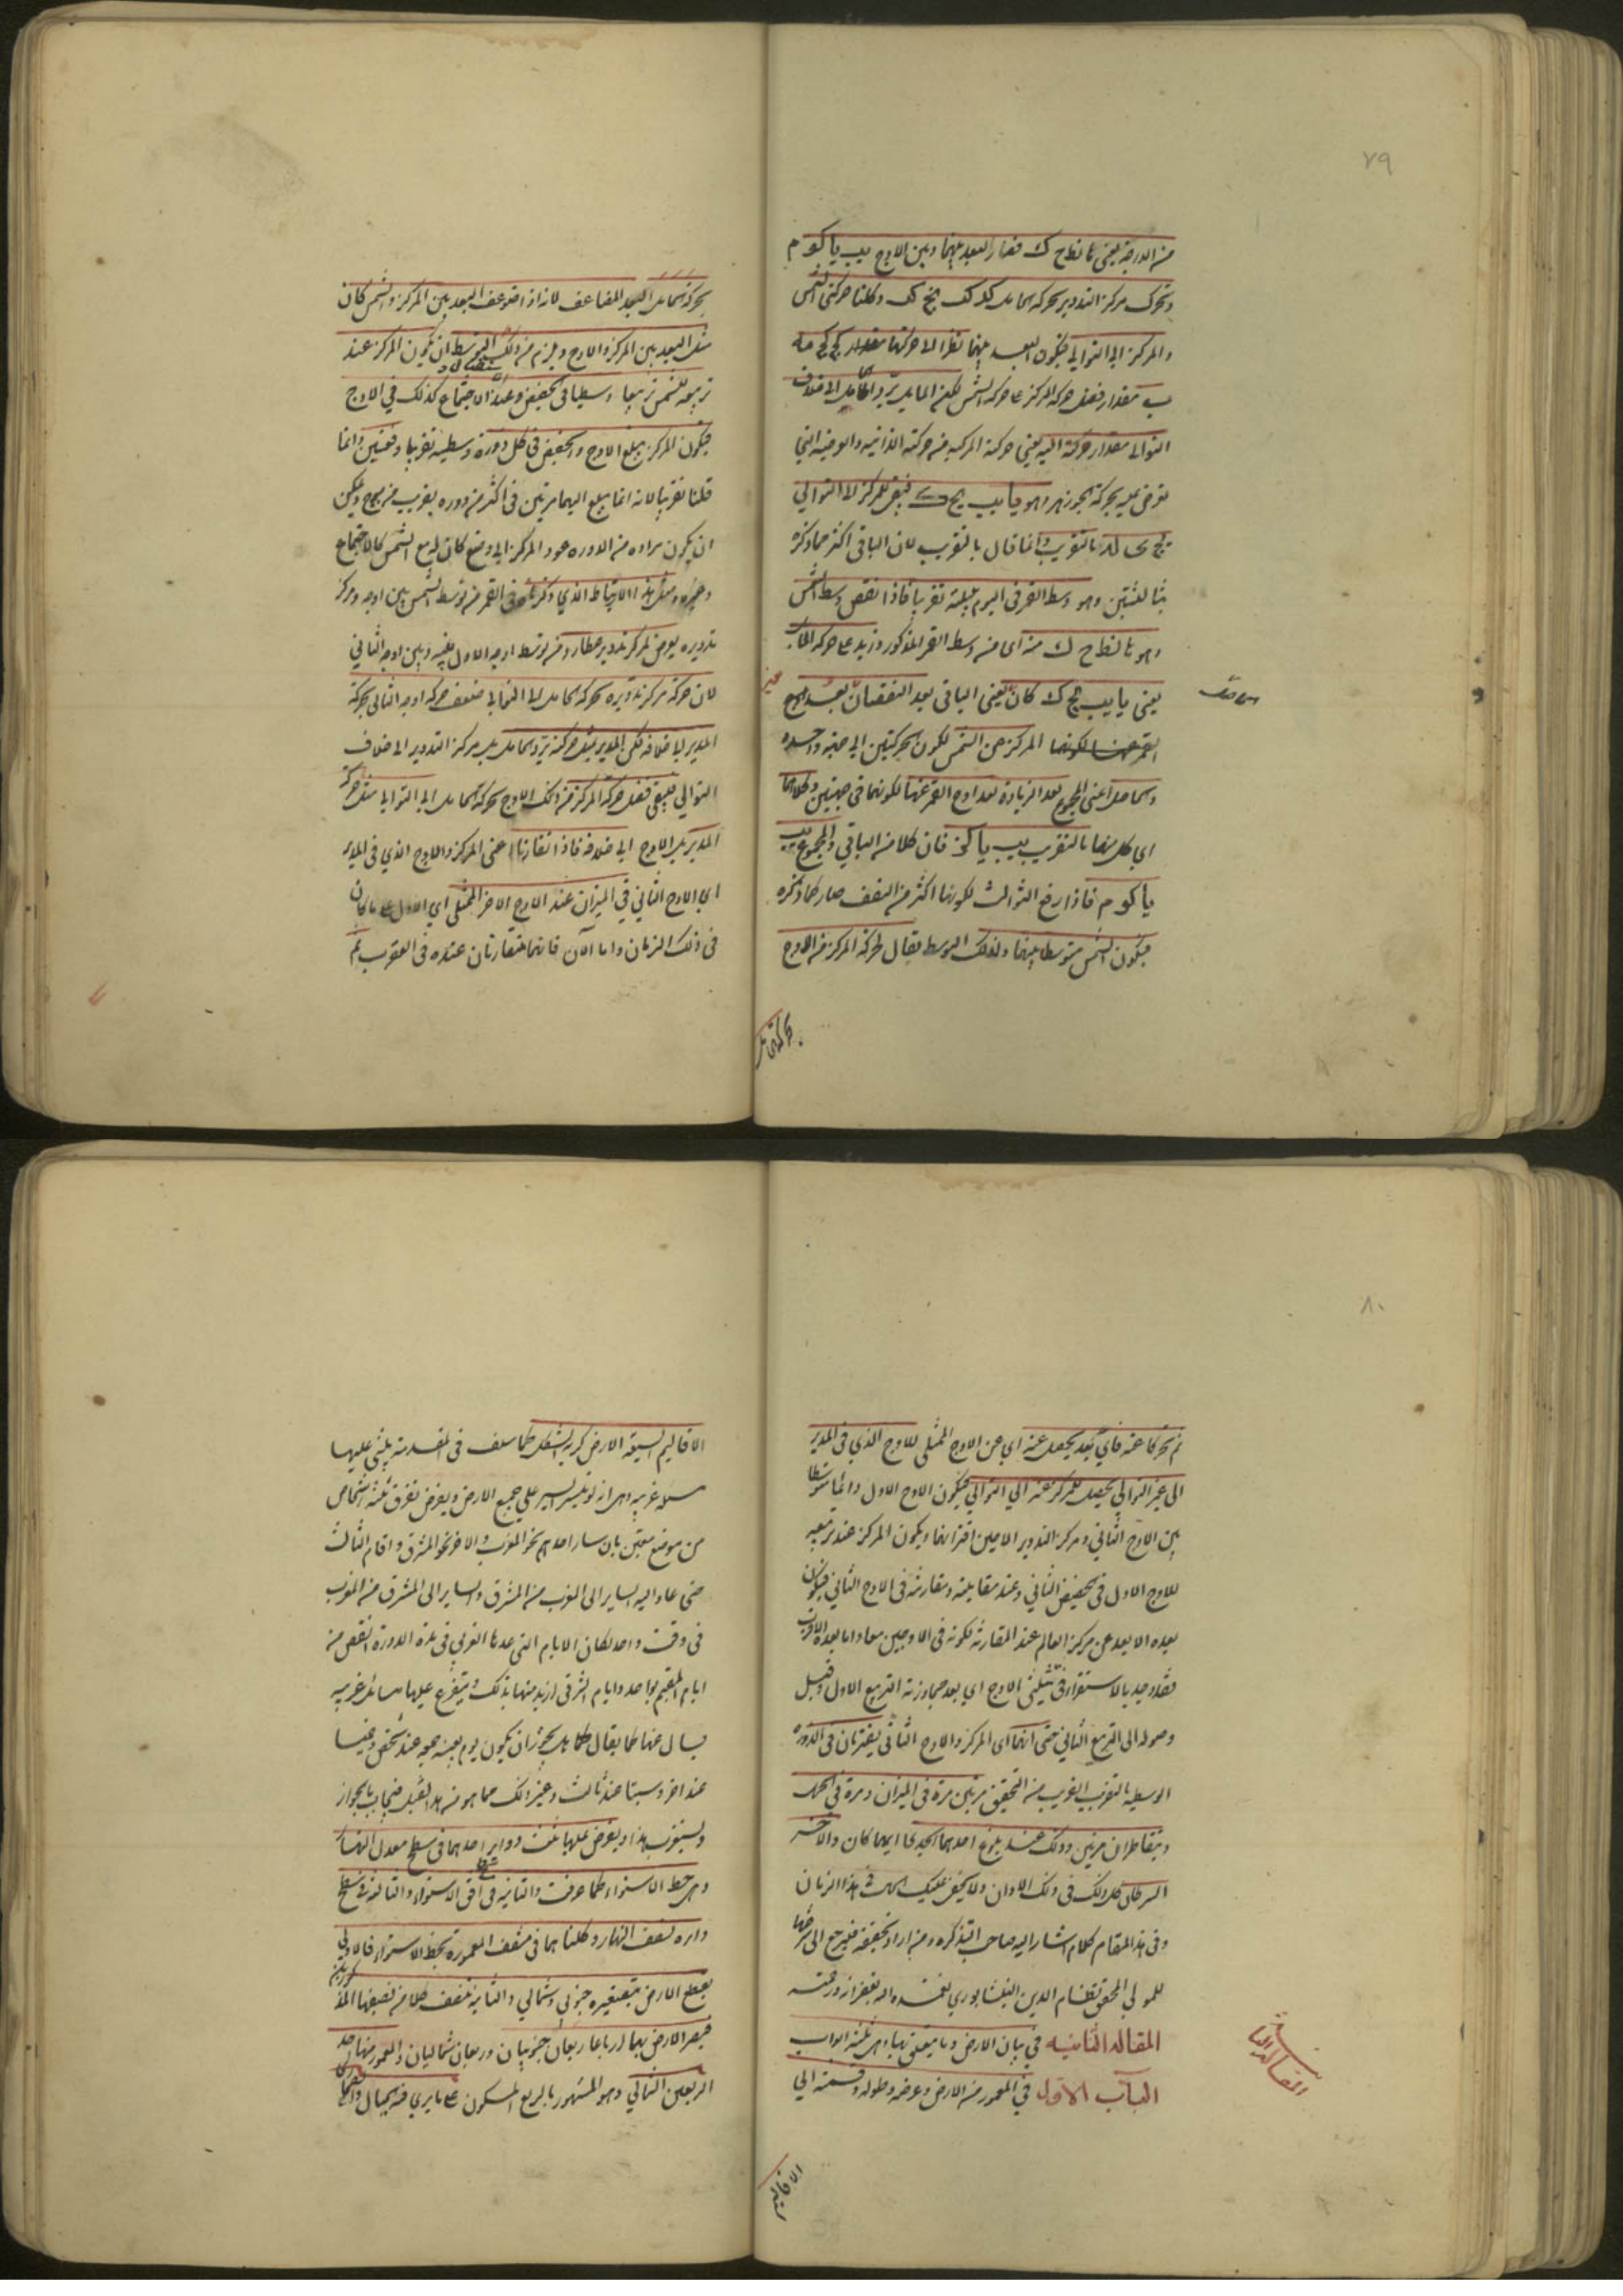 ٧٩
من الدرجة يعني نا نط ح ك فصار البعد بينهما وبين الاوج يب يا كو م
وتحرك مركز التدوير بحركة الحامل كد كب نج كب وكلتا حركتي الشمس
والمركز الى التوالي فيكون البعد بينهما نظرا الى حركتهما بمقدار
مقدار فضل حركة المركز على حركة الشمس لكن المايل يرد الحامل الى خلاف
التوالي مقدار حركته اليه يعني حركته المركبة من حركته الذاتية والعرضية التي
تعرض عليه بحركة الجوزهر وهو يا يب يح ك فيبقى للمركز الى التوالي
يج ى له بالتقريب وانما قال بالتقريب لان الباقي اكثر مما ذكره
بثالثتين وهو وسط القمر في اليوم بليلته تقريبا فاذا نقص وسط الشمس
وهو نا نط ح ك منه اى من وسط القمر المذكور وزيد على حركة المايل
يعني يا يب يح ك كان يعني الباقي بعد النقصان بعد
المركز عن الشمس لكون الحركتين الى جهة واحدة
والحاصل اعني المجموع بعد الزيادة بعد اوج القمر عنها لكونهما في جهتين وكلاهما
اى كل منهما بالتقريب يب يا كز فان كلا من الباقي والمجموع يب
يا كو م فاذا رفع الثوالث لكونها اكثر من النصف صار كما ذكره
فيكون الشمس متوسطا بينهما ولذلك التوسط يقال لحركة المركز من الاوج
بحركة الحامل
بحركة الحامل البعد المضاعف لانه اذا ضوعف البعد بين المركز والشمس كان
مثل البعد بين المركز والاوج ويلزم من ذلك التوسط ان يكون المركز عند
تربيعه للشمس تربيعا وسطيا في الحضيض وعند الاجتماع كذلك في الاوج
فيكون المركز يبلغ الاوج والحضيض في كل دورة وسطية تقريبا دفعتين وانما
قلنا تقريبا لانه انما يبلغ اليهما مرتين في اكثر من دورة بقريب من برج ويمكن
ان يكون مراده من الدورة عود المركز الى وضع كان له مع الشمس كالاجتماع
وغيره ومثل هذا الارتباط الذي ذكرناه في القمر من توسط الشمس بين اوجه ومركز
تدويره يعرض لمركز تدوير عطارد من توسط اوجه الاول بينه وبين اوجه الثاني
لان حركة مركز تدويره بحركة الحامل الى التوالي ضعف حركة اوجه الثاني بحركة
المدير الى خلافه لكن المدير بمثل حركته يرد الحامل بل مركز التدوير الى خلاف
التوالي فيبقى فضل حركة المركز من ذلك الاوج بحركة الحامل الى التوالي مثل حركة
المدير بل الاوج الى خلافه فاذا تقارنا اعني المركز والاوج الذي في المدير
اى الاوج الثاني في الميزان عند الاوج الاخر الممثلى اي الاول على ما كان
في ذلك الزمان واما الآن فانهما متقارنان عنده في العقرب ثم
٨٠
ثم تحركا عنه فاي بعد يحصل عنه اي عن الاوج الممثلى للاوج الذي في المدير
الى غير التوالي يحصل للمركز عنه الى التوالي فيكون الاوج الاول دائما متوسطا
بين الاوج الثاني ومركز التدوير الا حين اقترانهما ويكون المركز عند تربيعيه
للاوج الاول في الحضيض الثاني وعند مقابلته ومقارنته في الاوج الثاني فيكون
بعده الابعد عن مركز العالم عند المقارنة لكونه في الاوجين معا واما بعده الاقرب
فقد وجد بالاستقراء في تثليثي الاوج اي بعد مجاوزته التربيع الاول وقبل
وصوله الى التربيع الثاني حتى انهما اى المركز والاوج الثاني يقترنان في الدورة
الوسطية بالتقريب القريب من التحقيق مرتين مرة في الميزان ومرة في الحمل
ويتقاطران مرتين وذلك عند بلوغ احدهما الجدي ايهما كان والاخر
السرطان كل ذلك في ذلك الاوان ولا يخفى عليك الحال في هذا الزمان
وفي هذا المقام كلام اشار اليه صاحب التذكرة ومن اراد تحقيقه فليرجع الى شرحها
للمولى المحقق نظام الدين النيشابوري تغمده الله بغفرانه ورحمته
المقالة الثانية في بيان الارض وما يتعلق بها وهى ثلثة ابواب
الباب الاول في المعمور من الارض وعرضه وطوله وقسمته الى
المقالة الثانية
الاقاليم السبعة الارض كرية الشكل كما سلف في المقدمة يبتنى عليها
مسئلة غريبة وهى انه لو تيسر السير على جميع الارض ويفرض تفرق ثلثة اشخاص
من موضع معين بان سار احدهم نحو المغرب والاخر نحو المشرق واقام الثالث
حتى عاد اليه السائر الى المغرب من المشرق والسائر الى المشرق من المغرب
في وقت واحد لكان الايام التي عدها الغربي في هذه الدورة انقص من
ايام المقيم بواحد وايام الشرقي ازيد منها بذلك ويتفرع عليها مسائل غريبة
يسال عنها كما يقال هل يجوز ان يكون يوم بعينه جمعة عند شخص وخميسا
عند اخر وسبتا عند ثالث وغير ذلك مما هو من هذا القبيل فيجاب بالجواز
ويستغرب هذا ويفرض عليها ثلث دواير احدها في سطح معدل النهار
وهى خط الاستواء كما عرفت والثانية في سطح افق الاستواء والثالثة في سطح
دايرة نصف النهار وكلتاهما في منتصف المعمورة بخط الاستواء فالاولى
يقطع الارض بنصفين جنوبي وشمالي والثانية تنصف كلا من نصفيها المذكورين
فيصير الارض بهما ارباعا ربعان جنوبيان وربعان شماليان والمعمور منها احد
الربعين الشمالي وهو المشهور بالربع المسكون على ما يرى فيه الجبال